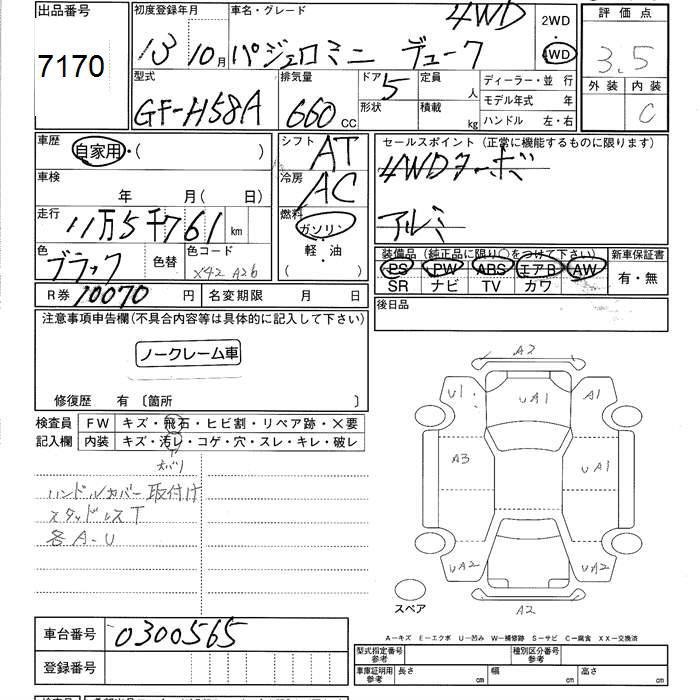 出品番号 7170
初度登録年月 13 10月
車名・グレード 4WD パジェロミニ デューク
2WD 4WD
評価点 3.5
外装 内装 C
型式 GF-H58A
排気量 660 CC
ドア 5 形状
定員 人 積載 kg
ディーラー・並 行
モデル年式 年
ハンドル 左・右
車歴 自家用・( )
シフト AT
車検 年 月( 日)
冷房 AC
走行 11万5千761 km
燃料 ガソリン・軽・油 ( )
色 ブラック 色替 色コード X42 A26
R券 10070 円 名変期限 月 日
セールスポイント(正常に機能するものに限ります)
4WDターボ
アルミ
装備品(純正品に限り○をつけて下さい) 新車保証書
PS PW ABS エアB AW 有・無
SR ナビ TV カワ
後日品
注意事項申告欄(不具合内容等は具体的に記入して下さい)
ノークレーム車
修復歴 有〔箇所 〕
検査員 FW キズ・飛石・ヒビ割・リペア跡・×要
記入欄 内装 キズ・汚レ・コゲ・穴・スレ・キレ・破レ
ハンドルカバー取付け
スタッドレスT
各A-U
A2
U1 UA1 A1
A3 UA1
UA2 UA2
A2
スペア
A-キズ E-エクボ U-凹み W-補修跡 S-サビ C-腐食 XX-交換済
車台番号 0300565
登録番号
型式指定番号 参考 種別区分番号 参考
車庫証明用 参考 長さ cm 幅 cm 高さ cm